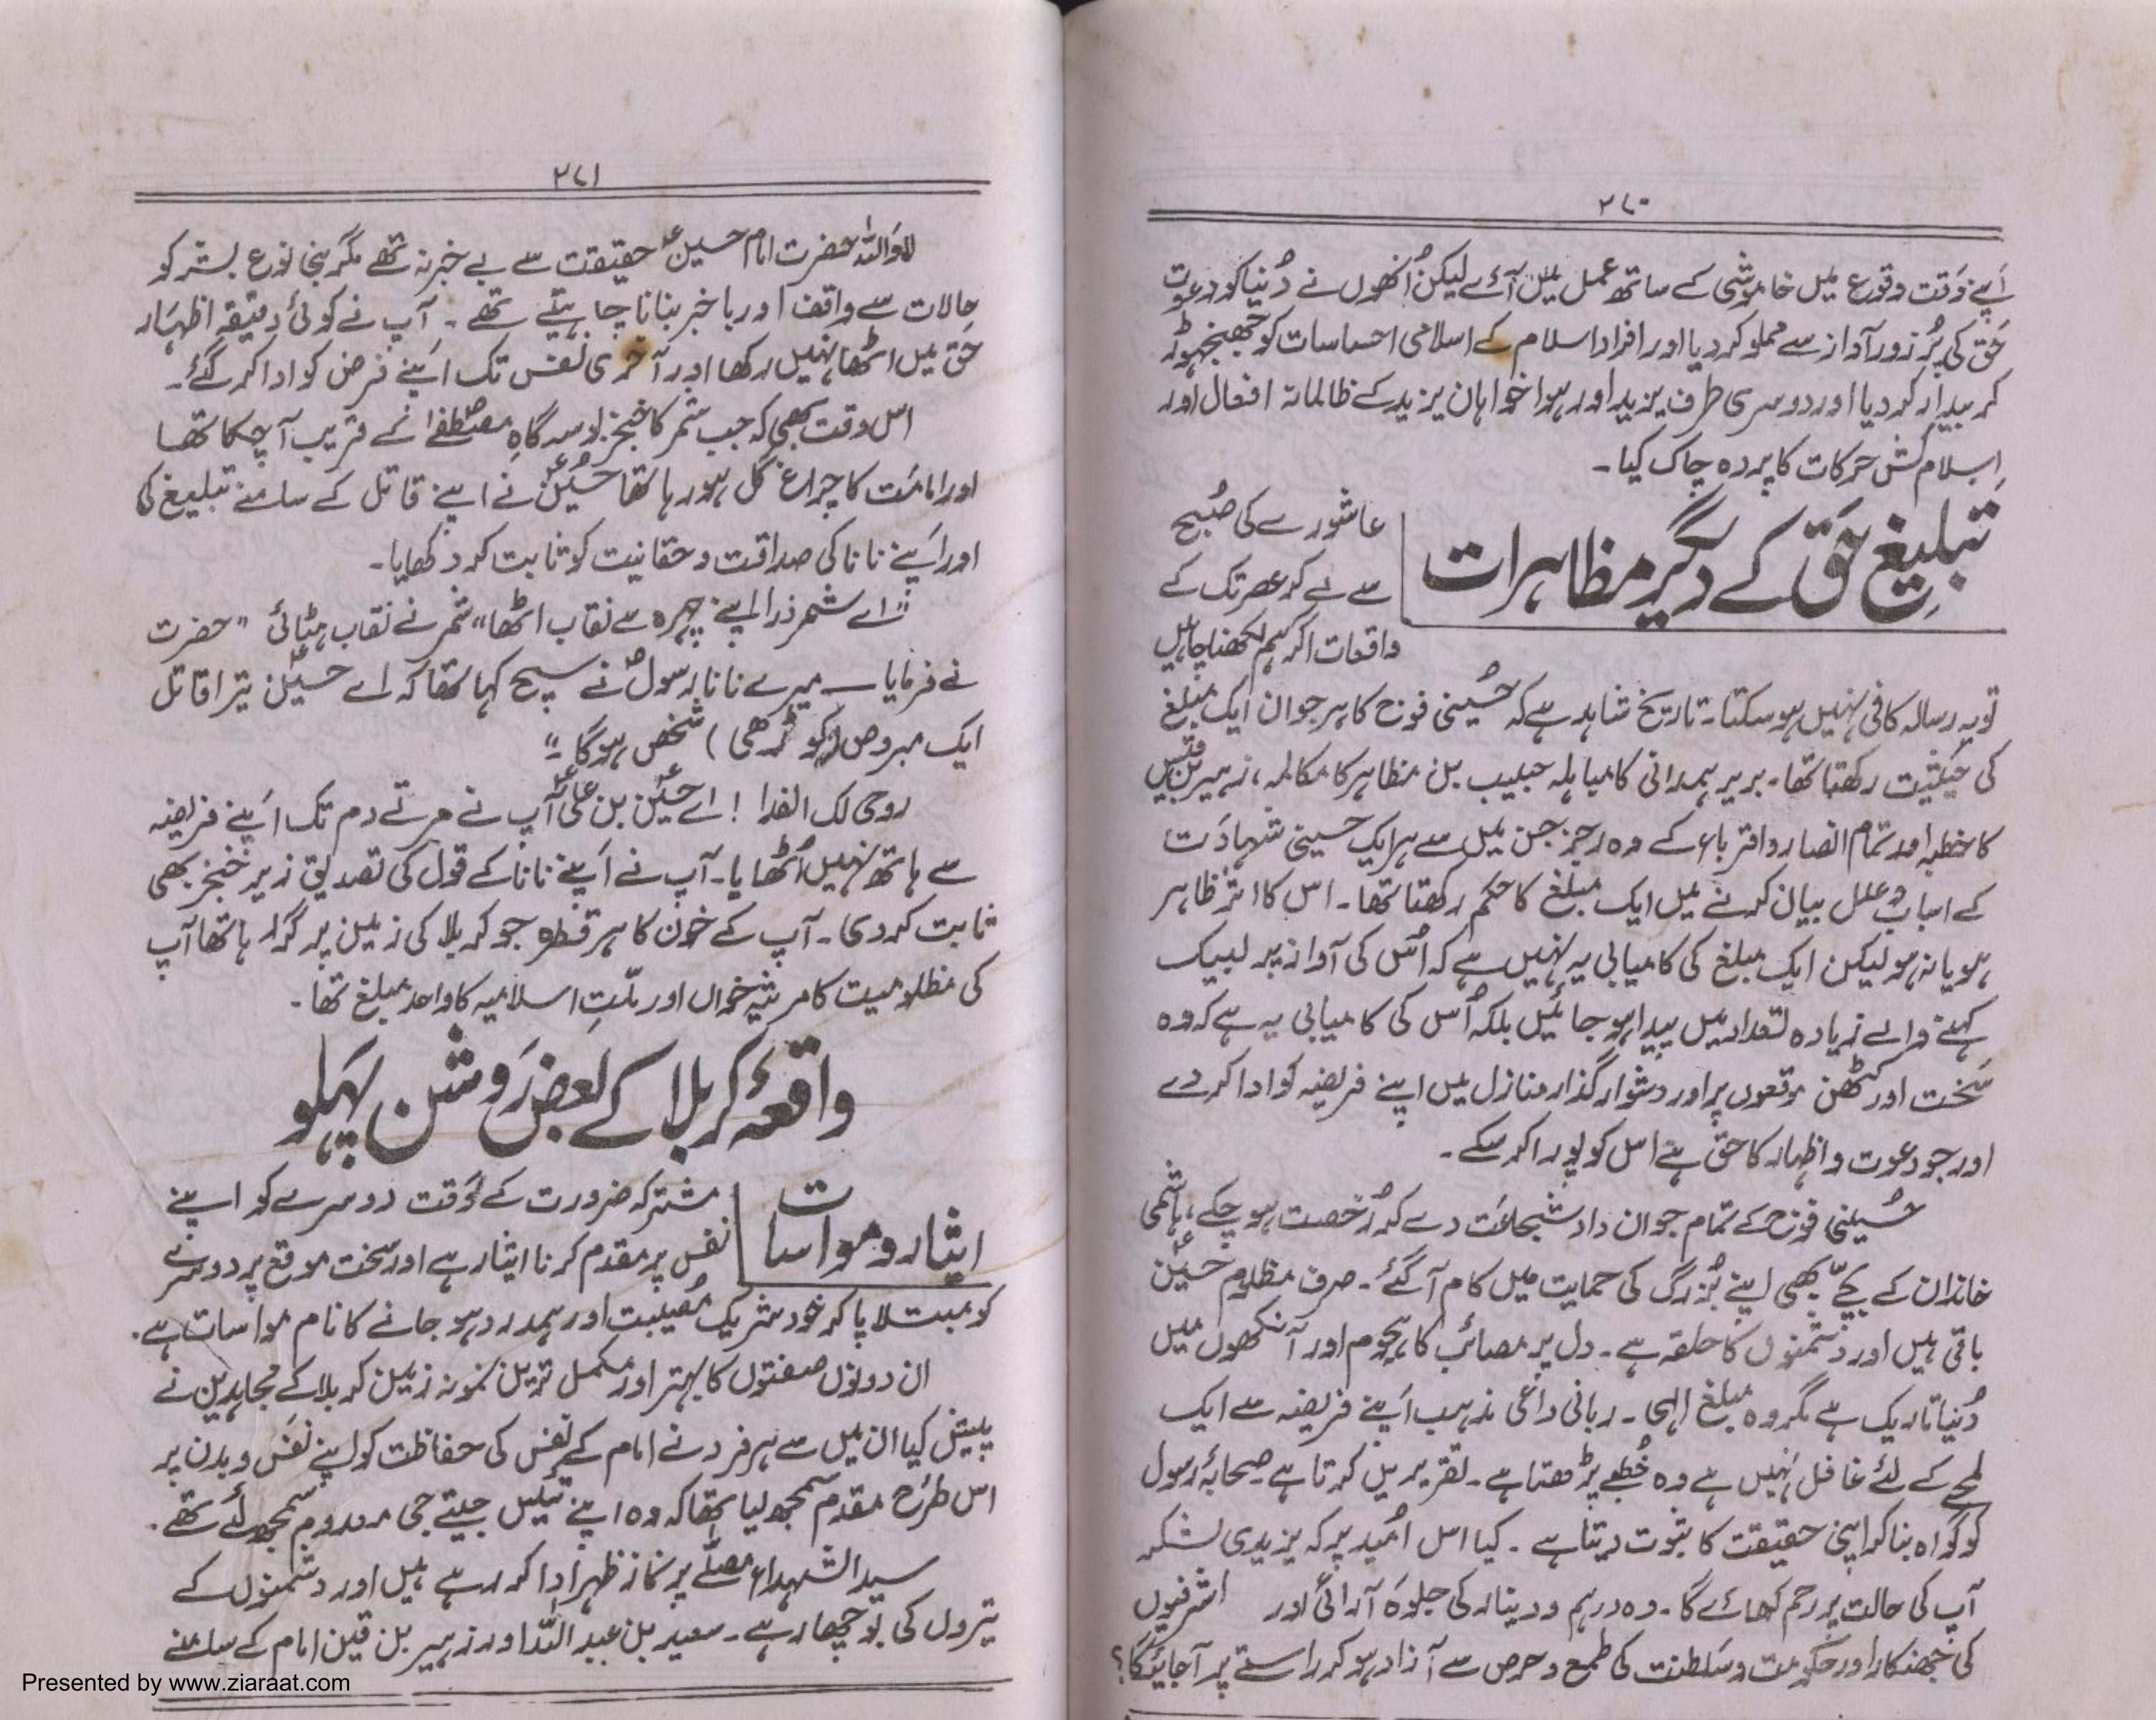 ۲۷۰
اپنے وقت وقوع میں خاموشی کے ساتھ عمل میں آئے لیکن اُنھوں نے دُنیا کو دعوت
حق کی پُر زور آواز سے مملو کر دیا اور افراد اسلام کے اسلامی احساسات کو جھنجہوڑ
کر بیدار کر دیا اور دوسری طرف یزید اور ہوا خواہان یزید کے ظالمانہ افعال اور
اِسلام کش حرکات کا پردہ چاک کیا۔
تبلیغِ حق کے دیگر مظاہرات
عاشورے کی صُبح
سے لے کر عصر تک کے
واقعات اگر ہم لکھنا چاہیں
تو یہ رسالہ کافی نہیں ہو سکتا۔ تاریخ شاہد ہے کہ حُسینی فوج کا ہر جوان ایک مبلغ
کی حیثیت رکھتا تھا۔ بریر ہمدانی کا مباہلہ حبیب بن مظاہر کا مکالمہ، زہیر بن قین
کا خطبہ اور تمام انصار و اقرباء کے وہ رجز جن میں سے ہر ایک حسینی شہادت
کے اسباب و علل بیان کرنے میں ایک مبلغ کا حکم رکھتا تھا۔ اس کا اثر ظاہر
ہو یا نہ ہو لیکن ایک مبلغ کی کامیابی یہ نہیں ہے کہ اُس کی آواز پر لبیک
کہنے والے زیادہ تعداد میں پیدا ہو جائیں بلکہ اُس کی کامیابی یہ ہے کہ وہ
سخت اور کٹھن موقعوں پر اور دشوار گذار منازل میں اپنے فریضہ کو ادا کر دے
اور جو دعوت و اظہار کا حق ہے اس کو پورا کر سکے۔
حُسینی فوج کے تمام جوان داد شجاعت دے کر رُخصت ہو چکے، ہاشمی
خاندان کے بچّے بھی اپنے بُزرگ کی حمایت میں کام آگئے۔ صرف مظلوم حسینؑ
باقی ہیں اور دشمنوں کا حلقہ ہے۔ دل پر مصائب کا ہجوم اور آنکھوں میں
دُنیا تاریک ہے مگر وہ مبلغ الہی۔ ربانی داعی مذہب اپنے فریضہ سے ایک
لمحے کے لئے غافل نہیں ہے وہ خُطبے پڑھتا ہے۔ تقریریں کرتا ہے صحابۂ رسول
کو گواہ بنا کر اپنی حقیقت کا ثبوت دیتا ہے۔ کیا اس اُمید پر کہ یزیدی لشکر
آپ کی حالت پر رحم کھائے گا۔ وہ درہم و دینار کی جلوہ آرائی اور اشرفیوں
کی جھنکار اور حکومت و سلطنت کی طمع و حرص سے آزاد ہو کر راستے پر آجائیگا؟
۲۷۱
لا واللہ حضرت امام حسینؑ حقیقت سے بے خبر نہ تھے مگر بنی نوع بشر کو
حالات سے واقف اور باخبر بنانا چاہتے تھے۔ آپ نے کوئی دقیقہ اظہار
حق میں اٹھا نہیں رکھا اور آخری نفس تک اپنے فرض کو ادا کر گئے۔
اس وقت بھی کہ جب شمر کا خنجر بوسہ گاہِ مصطفےٰؐ کے قریب آ چکا تھا
اور امامت کا چراغ گل ہو رہا تھا حُسینؑ نے اپنے قاتل کے سامنے تبلیغ کی
اور اپنے نانا کی صداقت و حقانیت کو ثابت کر دکھایا۔
"اے شمر ذرا اپنے چہرہ سے نقاب اٹھا" شمر نے نقاب ہٹائی "حضرت
نے فرمایا — میرے نانا رسولؐ نے سچ کہا تھا کہ اے حسینؑ تیرا قاتل
ایک مبروص (کوڑھی) شخص ہوگا۔"
روحی لک الفدا! اے حسینؑ بن علیؑ آپ نے مرتے دم تک اپنے فریضہ
سے ہاتھ نہیں اُٹھایا۔ آپ نے اپنے نانا کے قول کی تصدیق زیر خنجر بھی
ثابت کر دی۔ آپ کے خون کا ہر قطرہ جو کربلا کی زمین پر گر رہا تھا آپ
کی مظلومیت کا مرثیہ خواں اور ملّتِ اسلامیہ کا واحد مبلغ تھا۔
واقعۂ کربلا کے بعض روشن پہلو
ایثار و مواسات
مشترکہ ضرورت کے وقت دوسرے کو اپنے
نفس پر مقدم کرنا ایثار ہے اور سخت موقع پر دوسرے
کو مبتلا پا کر خود شریک مُصیبت اور ہمدرد ہو جانے کا نام مواسات ہے۔
ان دونوں صفتوں کا بہتر اور مکمل ترین نمونہ زمین کربلا کے مجاہدین نے
پیش کیا ان میں سے ہر فرد نے امام کے نفس کی حفاظت کو اپنے نفس و بدن پر
اس طرح مقدم سمجھ لیا تھا کہ وہ اپنے تئیں جیتے جی معدوم سمجھ لئے تھے۔
سید الشہداء مصلّے پر نماز ظہر ادا کر رہے ہیں اور دشمنوں کے
تیروں کی بوچھار ہے۔ سعید بن عبد اللہ اور زہیر بن قین امام کے سامنے
Presented by www.ziaraat.com